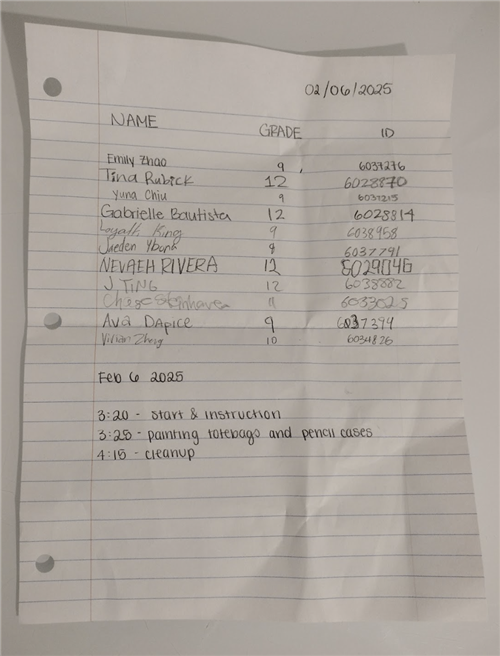 02/06/2025
NAME GRADE ID
Emily Zhao 9 6037276
Tina Rubick 12 6028870
Yuna Chiu 9 6037215
Gabrielle Bautista 12 6028814
King 9 6038958
Jaeden 6037791
NEVAEH RIVERA 12 6029046
J. TING 12 6038882
11 6033025
Ava DApice 9 6037394
Vivian Zheng 10 6034826
Feb 6 2025
3:20 - start & instruction
3:25 - painting totebags and pencil cases
4:15 - cleanup